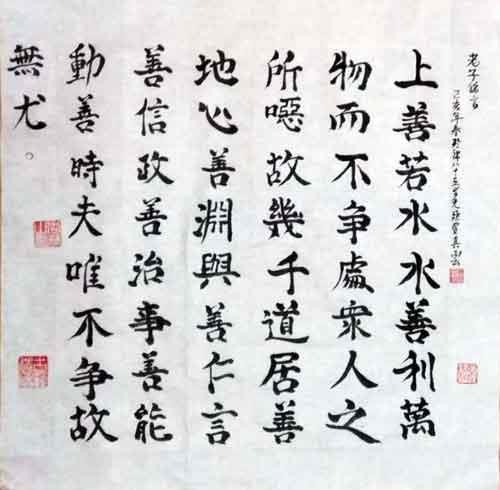 老子
己亥年春
上善若水水善利萬
物而不争處衆人之
所噁故幾千道居善
地心善淵與善仁言
善信政善治事善能
動善時夫唯不争故
無尤。